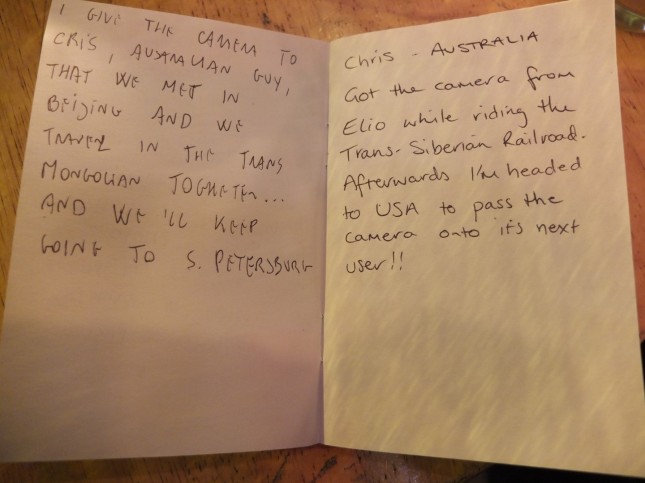 I GIVE THE CAMERA TO
CRIS, AUSTRALIAN GUY,
THAT WE MET IN
BEIJING AND WE
TRAVEL IN THE TRANS
MONGOLIAN TOGHETER...
AND WE'LL KEEP
GOING TO S. PETERSBURG
Chris - AUSTRALIA
Got the camera from
Elio while riding the
Trans-Siberian Railroad.
Afterwards I'm headed
to USA to pass the
camera onto it's next
user!!